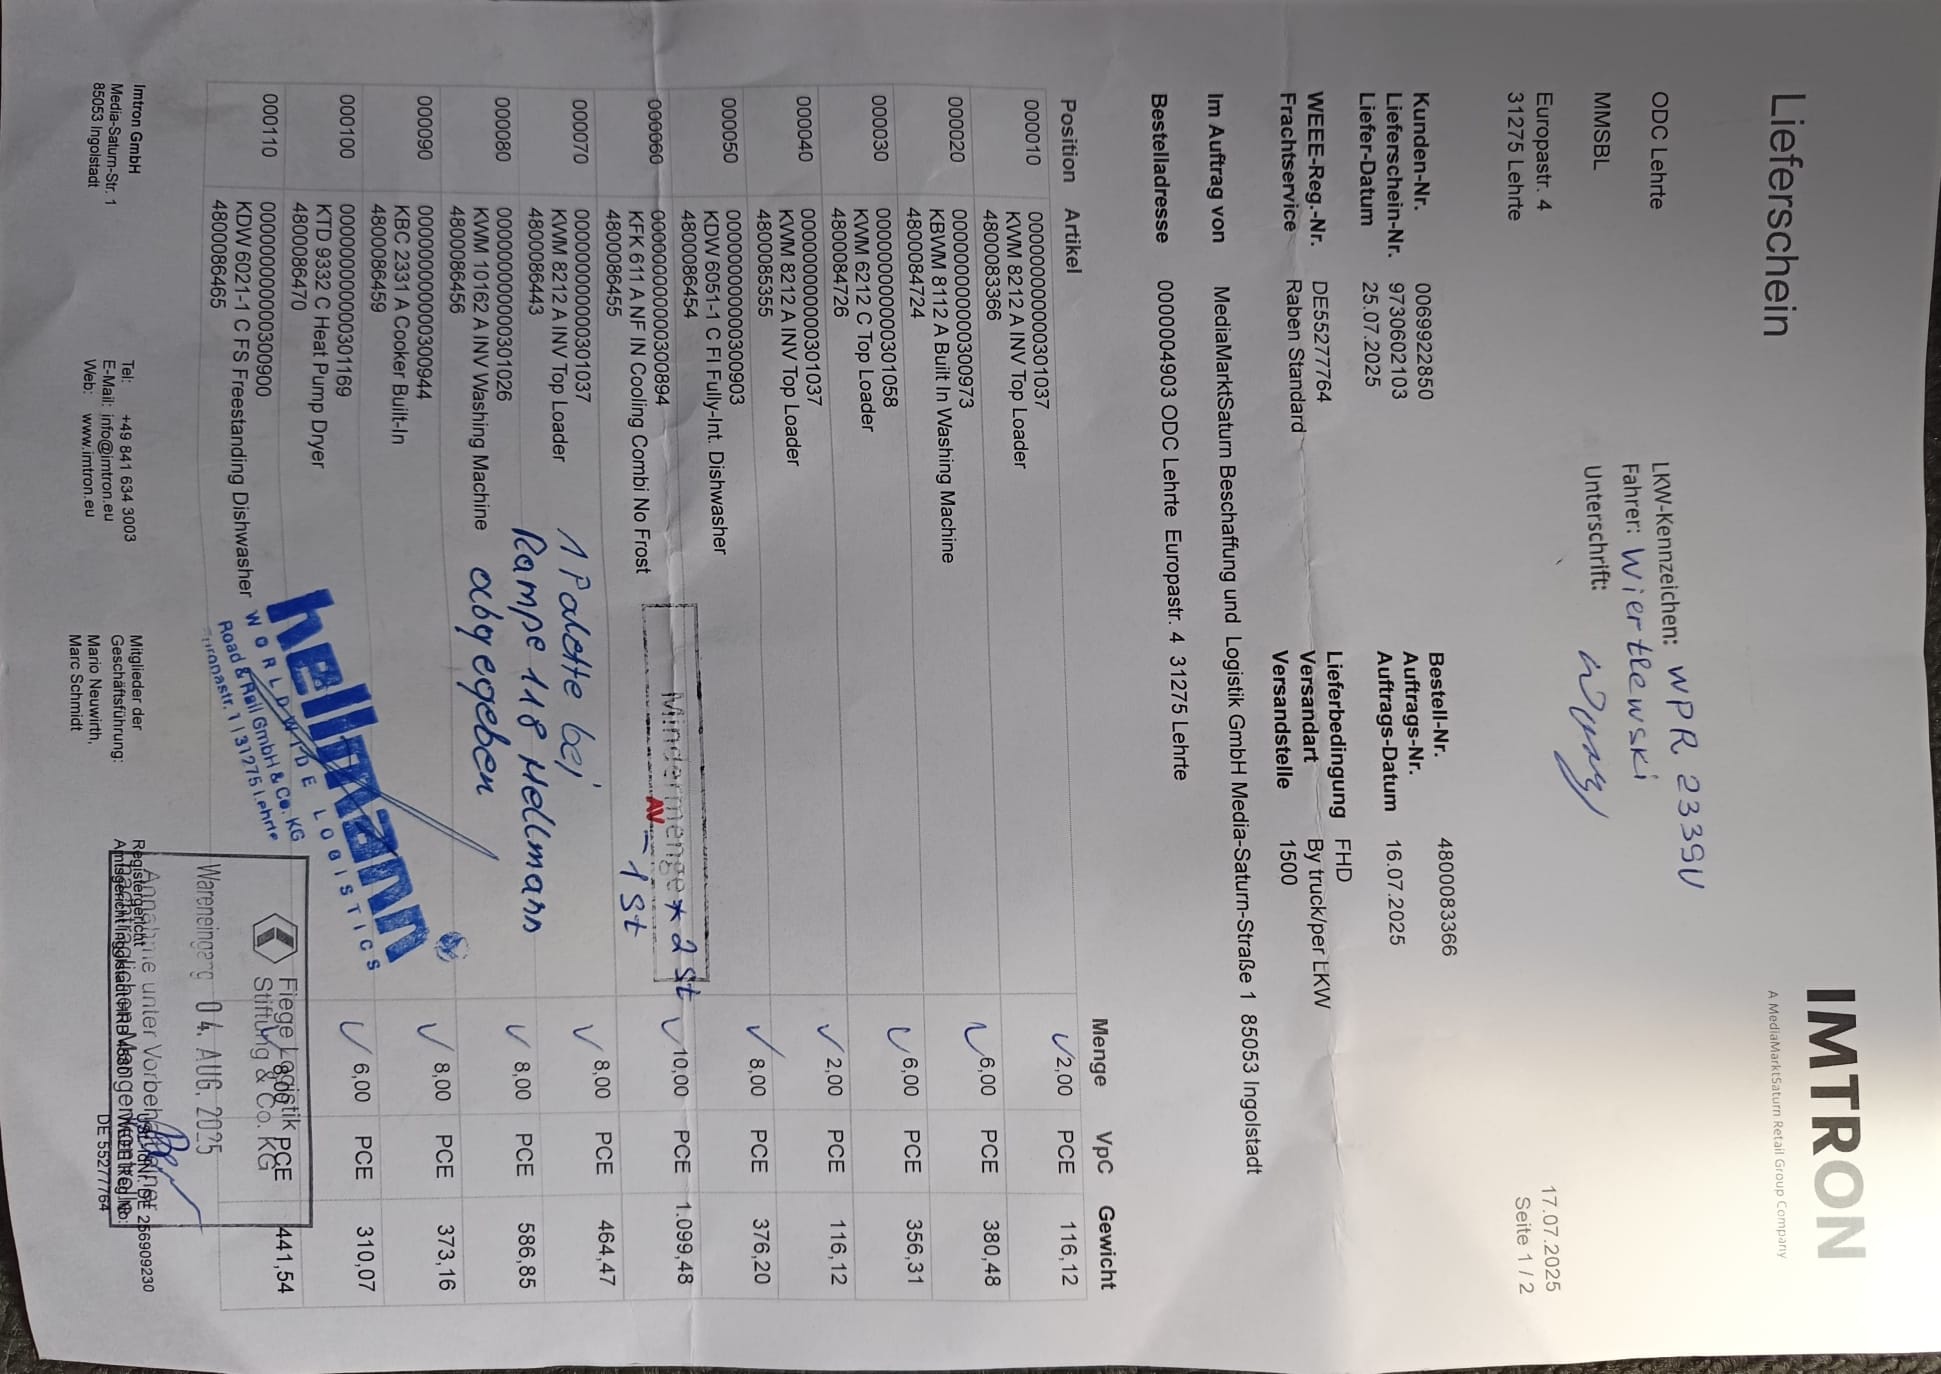 Lieferschein
IMTRON
A MediaMarktSaturn Retail Group Company
ODC Lehrte
MMSBL
Europastr. 4
31275 Lehrte
LKW-Kennzeichen: WPR 2339U
Fahrer: Wiertlewski
Unterschrift:
17.07.2025
Seite 1 / 2
Kunden-Nr. 0069922850
Lieferschein-Nr. 9730602103
Liefer-Datum 25.07.2025
WEEE-Reg.-Nr. DE55277764
Frachtservice Raben Standard
Bestell-Nr. 4800083366
Auftrags-Nr.
Auftrags-Datum 16.07.2025
Lieferbedingung FHD
Versandart By truck/per LKW
Versandstelle 1500
Im Auftrag von MediaMarktSaturn Beschaffung und Logistik GmbH Media-Saturn-Straße 1 85053 Ingolstadt
Bestelladresse 0000004903 ODC Lehrte Europastr. 4 31275 Lehrte
Position Artikel Menge VpC Gewicht
000010 000000000000301037 2,00 PCE 116,12
KWM 8212 A INV Top Loader
4800083366
000020 000000000000300973 6,00 PCE 380,48
KBWM 8112 A Built In Washing Machine
4800084724
000030 000000000000301058 6,00 PCE 356,31
KWM 6212 C Top Loader
4800084726
000040 000000000000301037 2,00 PCE 116,12
KWM 8212 A INV Top Loader
4800085355
000050 000000000000300903 8,00 PCE 376,20
KDW 6051-1 C FI Fully-Int. Dishwasher
4800086454
000060 000000000000300894 10,00 PCE 1.099,48
KFK 611 A NF IN Cooling Combi No Frost
4800086455
Mindermenge * 2 St
AV – 1 St
000070 000000000000301037 8,00 PCE 464,47
KWM 8212 A INV Top Loader
4800086443
1 Palette bei
Rampe 118 Hellmann
abgegeben
000080 000000000000301026 8,00 PCE 586,85
KWM 10162 A INV Washing Machine
4800086456
000090 000000000000300944 8,00 PCE 373,16
KBC 2331 A Cooker Built-In
4800086459
000100 000000000000301169 6,00 PCE 310,07
KTD 9332 C Heat Pump Dryer
4800086470
000110 000000000000300900 8,00 PCE 441,54
KDW 6021-1 C FS Freestanding Dishwasher
4800086465
hellmann
WORLDWIDE LOGISTICS
Road & Rail GmbH & Co. KG
Europastr. 1 | 31275 Lehrte
Fiege Logistik
Stiftung & Co. KG
Wareneingang 04. AUG. 2025
Annahme unter Vorbehalt
Imtron GmbH
Media-Saturn-Str. 1
85053 Ingolstadt
Tel: +49 841 634 3003
E-Mail: info@imtron.eu
Web: www.imtron.eu
Mitglieder der
Geschäftsführung:
Mario Neuwirth,
Marc Schmidt
Registergericht:
Amtsgericht Ingolstadt HRB 4530
DE 256909230
DE 55277764